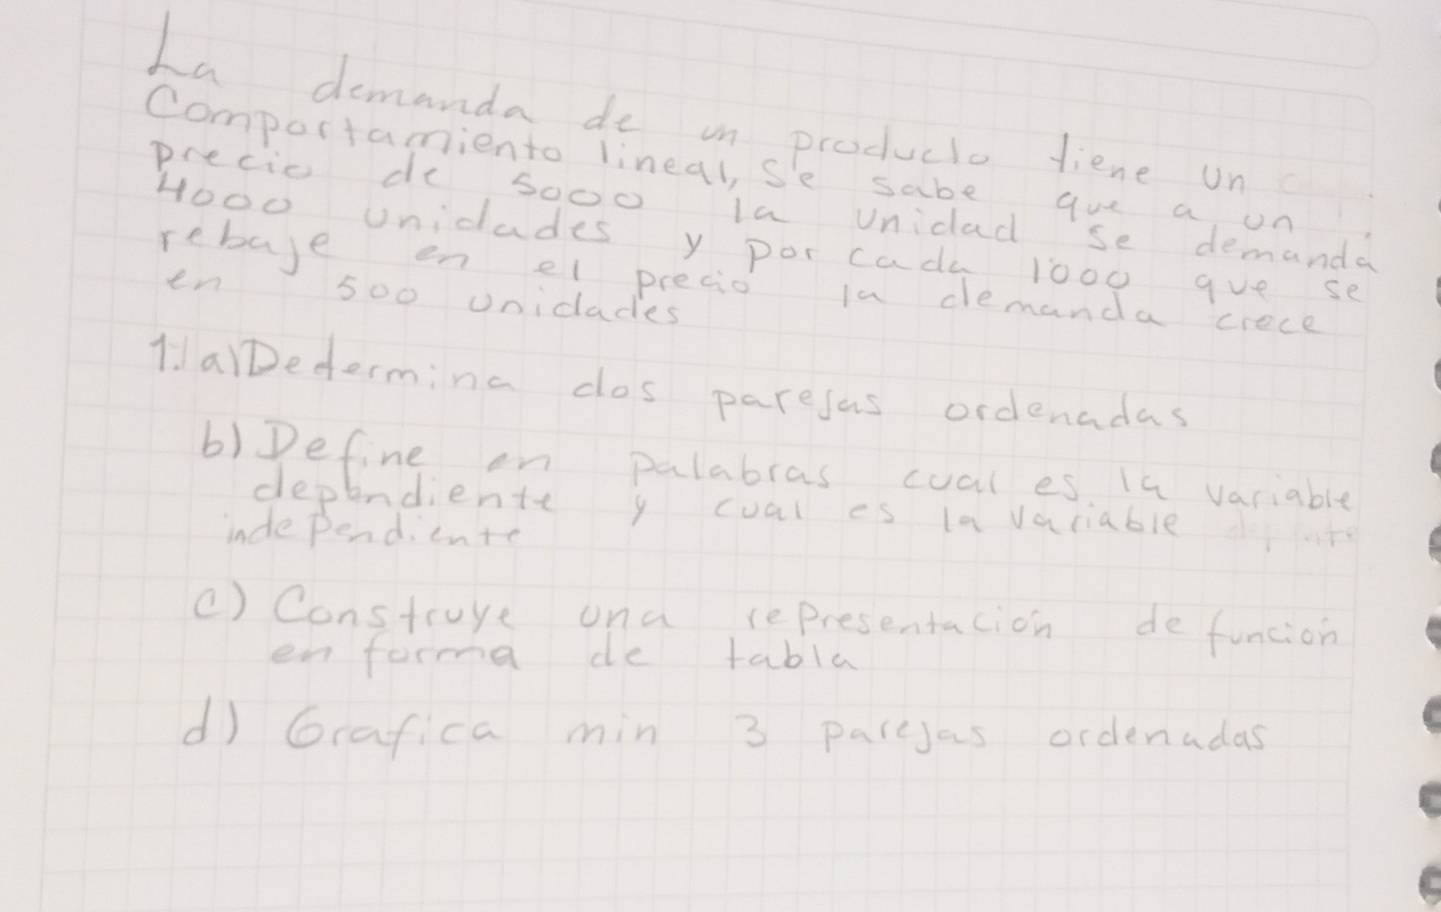 La demanda de un producto tiene un
Comportamiento lineal, se sabe que a un
precio de 5000 la unidad se demanda
4000 unidades y por cada 1000 que se
rebaje en el precio la demanda crece
en 500 unidades
1. a) Determina dos parejas ordenadas
b) Define en palabras cual es la variable
dependiente y cual es la variable
independiente
c) Construye una representación de función
en forma de tabla
d) Grafica min 3 parejas ordenadas